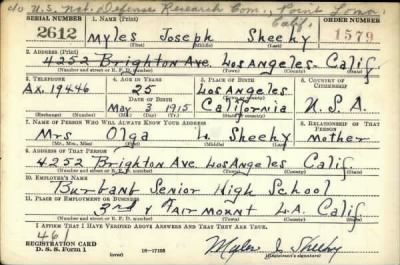 c/o U.S. Nat. Defense Research Com., Point Loma, Calif.
SERIAL NUMBER 1. NAME (Print) ORDER NUMBER
2612 Myles Joseph Sheehy 1579
(First) (Middle) (Last)
2. ADDRESS (Print)
4252 Brighton Ave. Los Angeles Calif.
(Number and street or R. F. D. number) (Town) (County) (State)
3. TELEPHONE 4. AGE IN YEARS 5. PLACE OF BIRTH 6. COUNTRY OF CITIZENSHIP
Ax. 19446 25 Los Angeles
DATE OF BIRTH (Town or county)
May 3 1915 California U.S.A.
(Exchange) (Number) (Mo.) (Day) (Yr.) (State or country)
7. NAME OF PERSON WHO WILL ALWAYS KNOW YOUR ADDRESS 8. RELATIONSHIP OF THAT PERSON
Mrs Olga L. Sheehy Mother
(Mr., Mrs., Miss) (First) (Middle) (Last)
9. ADDRESS OF THAT PERSON
4252 Brighton Ave Los Angeles Calif
(Number and street or R. F. D. number) (Town) (County) (State)
10. EMPLOYER'S NAME
Burbank Senior High School
11. PLACE OF EMPLOYMENT OR BUSINESS
3rd & Fairmount L.A. Calif
(Number and street or R. F. D. number) (Town) (County) (State)
I AFFIRM THAT I HAVE VERIFIED ABOVE ANSWERS AND THAT THEY ARE TRUE.
461
REGISTRATION CARD
D. S. S. Form 1 16—17105 Myles J. Sheehy
(Registrant's signature)